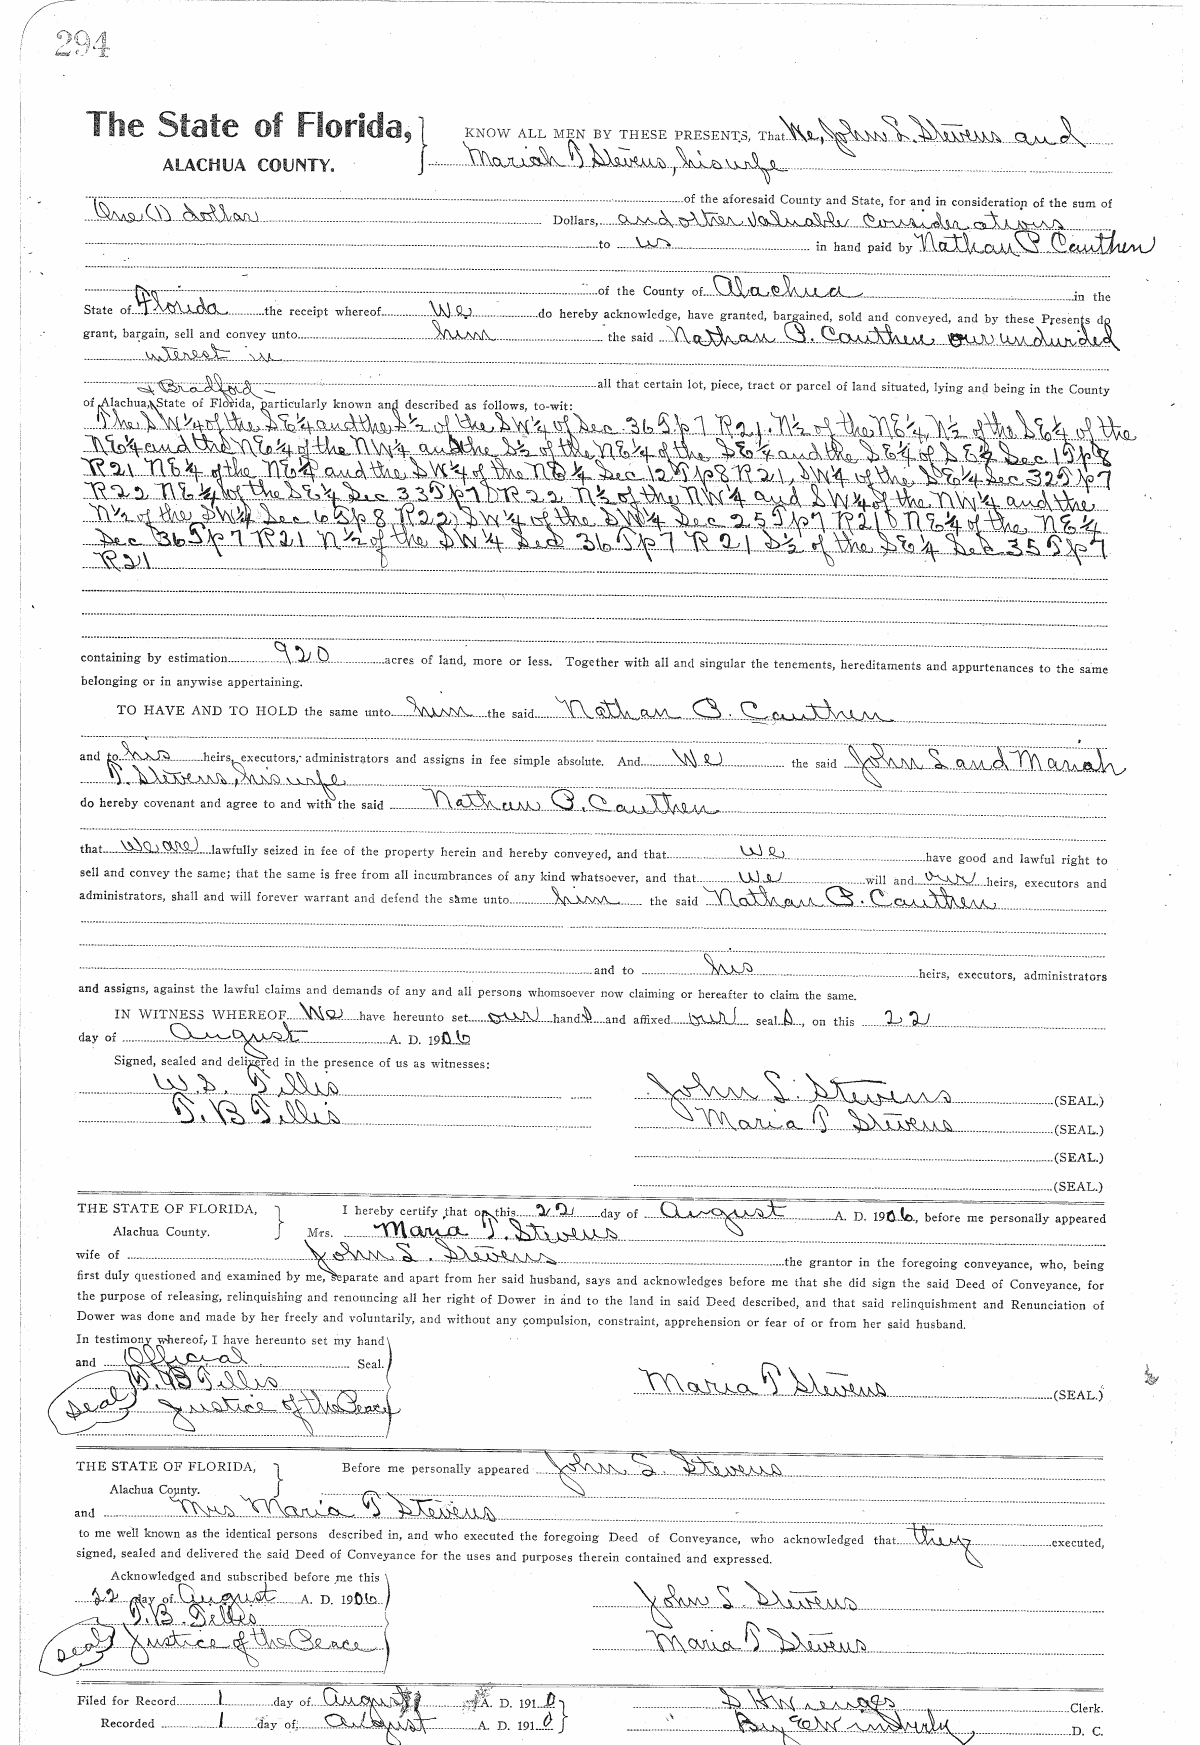 294
The State of Florida,
ALACHUA COUNTY.
KNOW ALL MEN BY THESE PRESENTS, That We, John L. Stevens and
Mariah T Stevens, his wife
of the aforesaid County and State, for and in consideration of the sum of
One (1) dollar Dollars, and other valuable considerations
to us in hand paid by Nathan P. Cauthen
of the County of Alachua in the
State of Florida the receipt whereof We do hereby acknowledge, have granted, bargained, sold and conveyed, and by these Presents do
grant, bargain, sell and convey unto him the said Nathan P. Cauthen our undivided
interest in
& Bradford all that certain lot, piece, tract or parcel of land situated, lying and being in the County
of Alachua, State of Florida, particularly known and described as follows, to-wit:
The SW¼ of the SE¼ and the S½ of the SW¼ of Sec 36 Tp 7 R21. N½ of the NE¼, N½ of the SE¼ of the
NE¼ and the NE¼ of the NW¼ and the S½ of the NE¼ of the SE¼ and the SE¼ of SE¼ Sec 1 Tp 8
R21 NE¼ of the NE¼ and the SW¼ of the NE¼ Sec 12 Tp 8 R21, SW¼ of the SE¼ Sec 32 Tp 7
R22 NE¼ of the SE¼ Sec 33 Tp 7 R22 N½ of the NW¼ and SW¼ of the NW¼ and the
N½ of the SW¼ Sec 6 Tp 8 R22, SW¼ of the SW¼ Sec 25 Tp 7 R21 NE¼ of the NE¼
Sec 36 Tp 7 R21 N½ of the SW¼ Sec 36 Tp 7 R 21 S½ of the SE¼ Sec 35 Tp 7
R21
containing by estimation 920 acres of land, more or less. Together with all and singular the tenements, hereditaments and appurtenances to the same
belonging or in anywise appertaining.
TO HAVE AND TO HOLD the same unto him the said Nathan P. Cauthen
and to his heirs, executors, administrators and assigns in fee simple absolute. And We the said John L and Mariah
T. Stevens, his wife
do hereby covenant and agree to and with the said Nathan P. Cauthen
that we are lawfully seized in fee of the property herein and hereby conveyed, and that we have good and lawful right to
sell and convey the same; that the same is free from all incumbrances of any kind whatsoever, and that we will and our heirs, executors and
administrators, shall and will forever warrant and defend the same unto him the said Nathan P. Cauthen
and to his heirs, executors, administrators
and assigns, against the lawful claims and demands of any and all persons whomsoever now claiming or hereafter to claim the same.
IN WITNESS WHEREOF We have hereunto set our hands and affixed our seals, on this 22
day of August A. D. 1906
Signed, sealed and delivered in the presence of us as witnesses:
W. S. Tillis
T. B Tillis
John L. Stevens (SEAL.)
Maria T Stevens (SEAL.)
(SEAL.)
(SEAL.)
THE STATE OF FLORIDA,
Alachua County.
I hereby certify that on this 22 day of August A. D. 1906, before me personally appeared
Mrs. Maria T. Stevens
wife of John L. Stevens the grantor in the foregoing conveyance, who, being
first duly questioned and examined by me, separate and apart from her said husband, says and acknowledges before me that she did sign the said Deed of Conveyance, for
the purpose of releasing, relinquishing and renouncing all her right of Dower in and to the land in said Deed described, and that said relinquishment and Renunciation of
Dower was done and made by her freely and voluntarily, and without any compulsion, constraint, apprehension or fear of or from her said husband.
In testimony whereof, I have hereunto set my hand
and Official Seal.
T. B Tillis
seal Justice of the Peace
Maria T Stevens (SEAL.)
THE STATE OF FLORIDA,
Alachua County.
Before me personally appeared John L. Stevens
and Mrs Maria T Stevens
to me well known as the identical persons described in, and who executed the foregoing Deed of Conveyance, who acknowledged that they executed,
signed, sealed and delivered the said Deed of Conveyance for the uses and purposes therein contained and expressed.
Acknowledged and subscribed before me this
22 day of August A. D. 1906
T. B. Tillis
seal Justice of the Peace
John L Stevens
Maria T Stevens
Filed for Record 1 day of August A. D. 1910
Recorded 1 day of August A. D. 1910
S H Wienges Clerk.
By D. C.